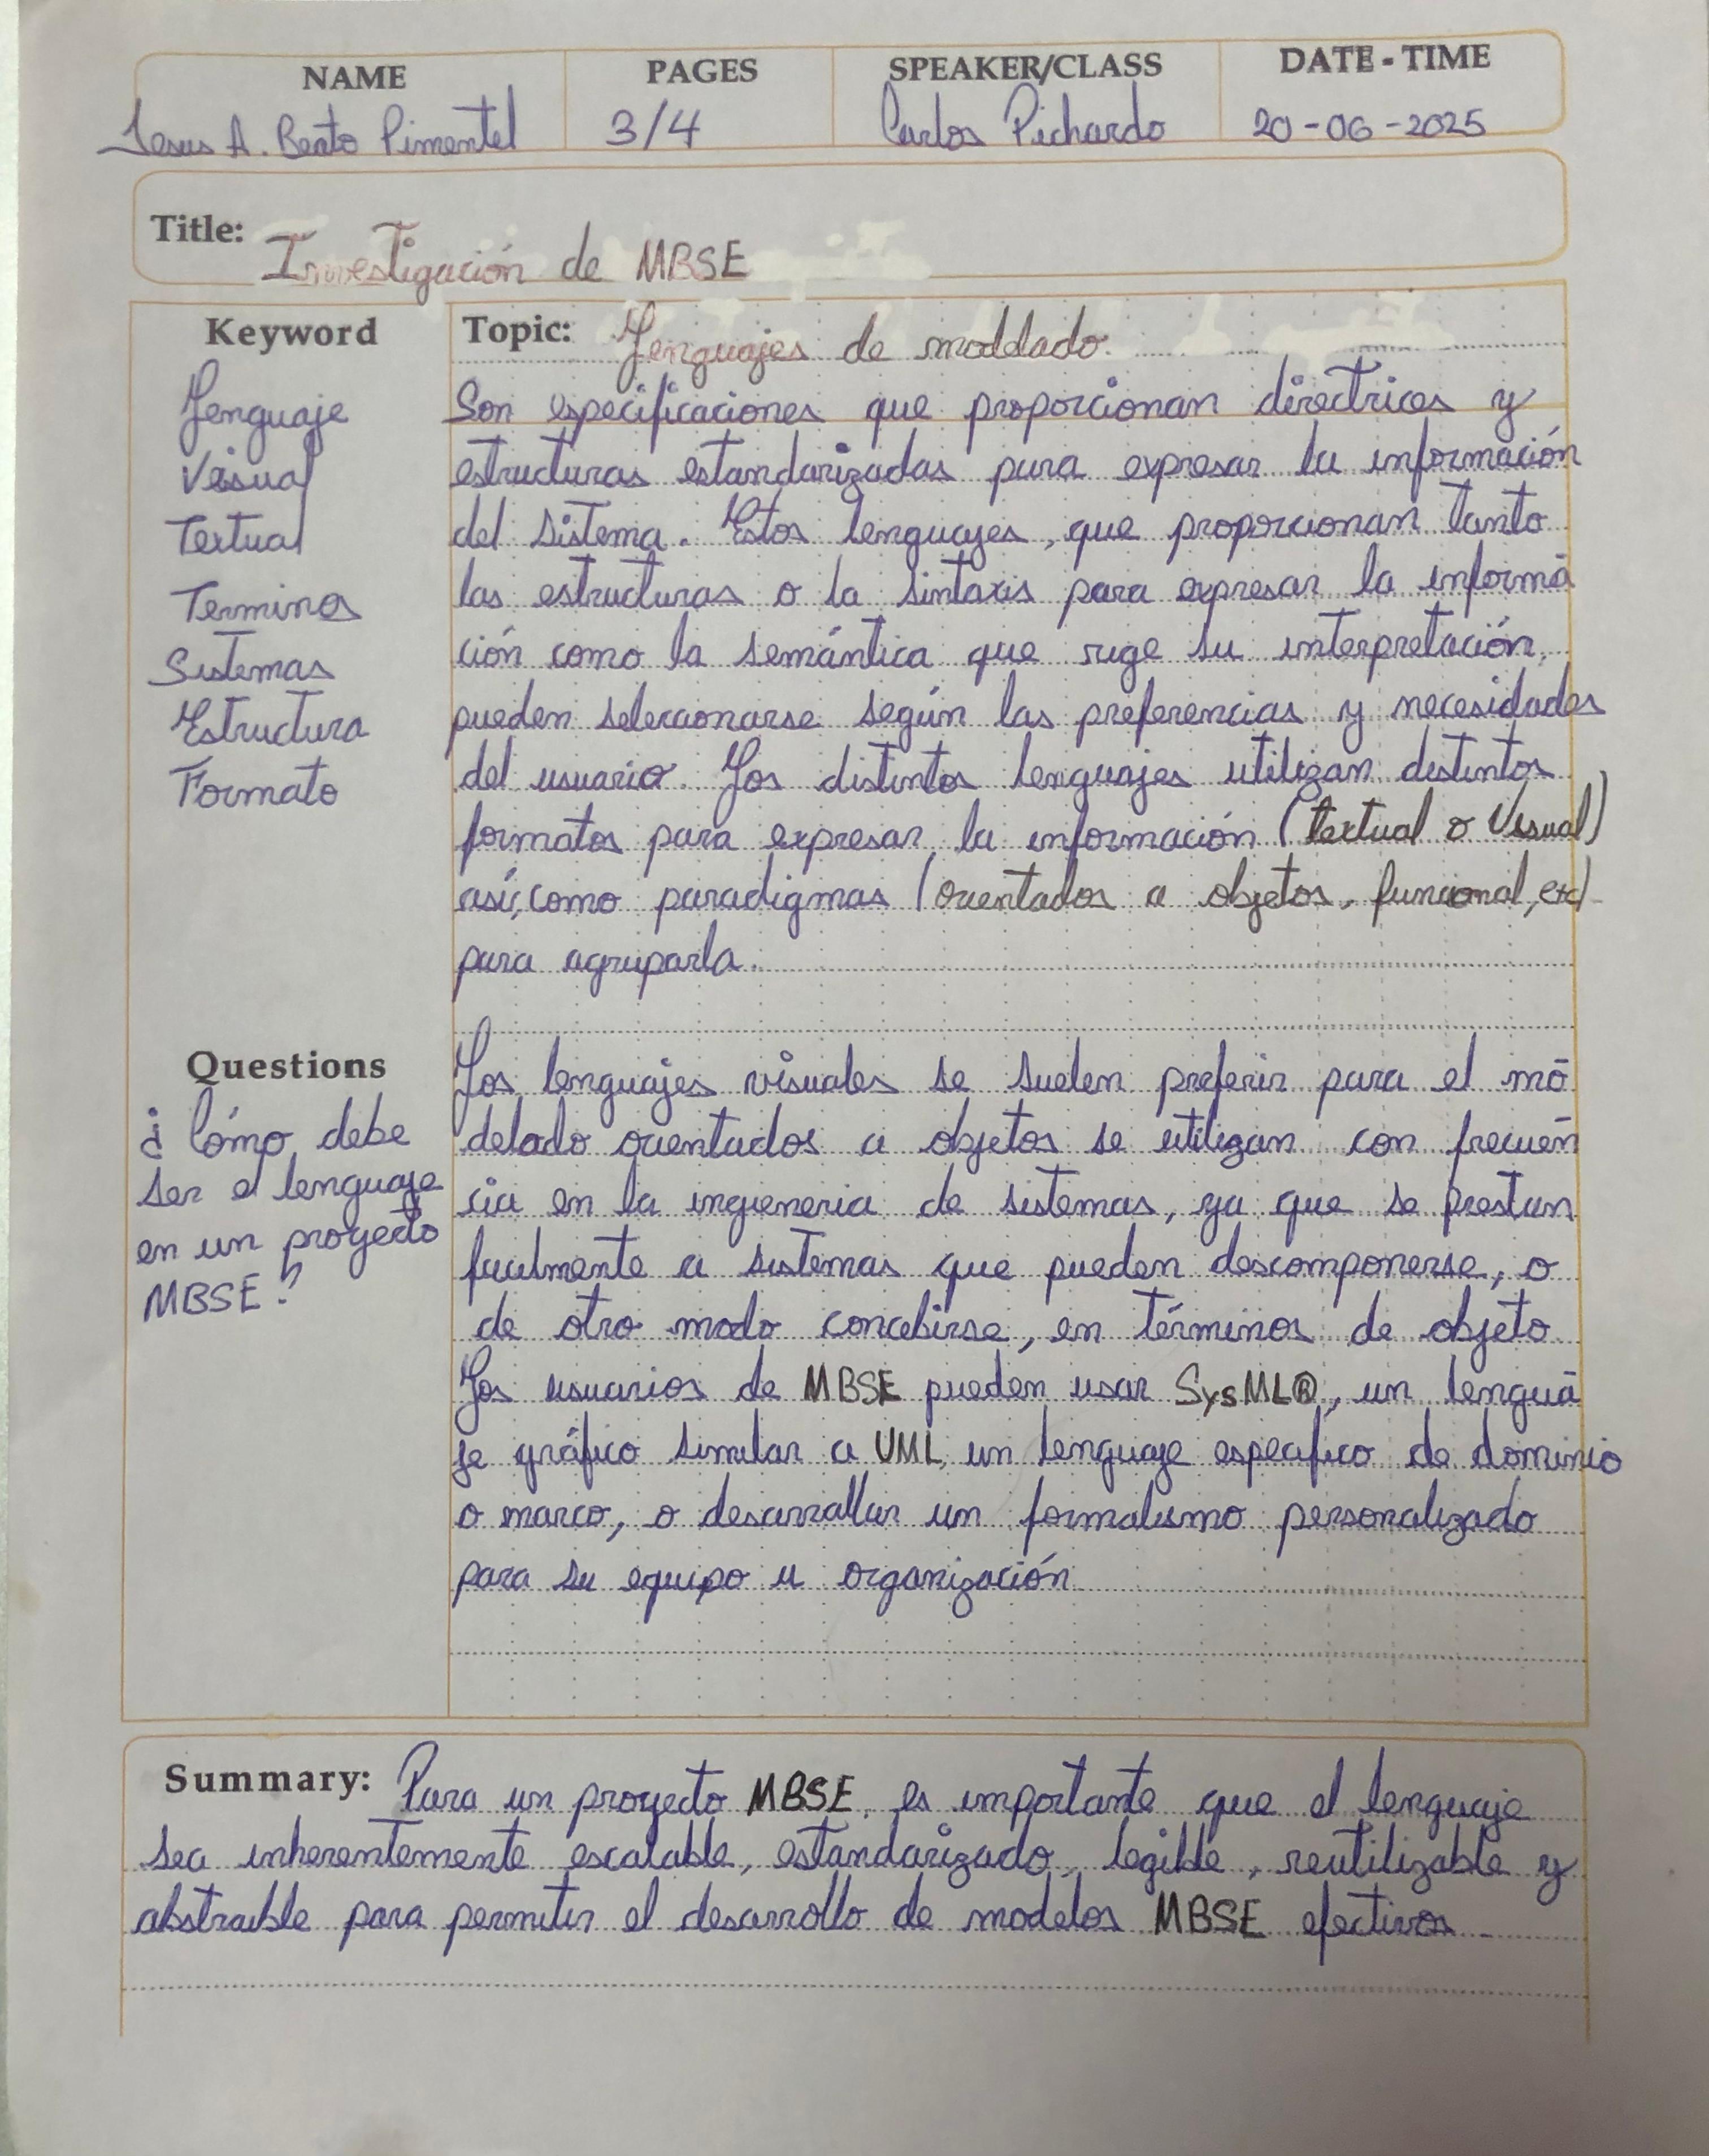 NAME
PAGES
SPEAKER/CLASS
DATE - TIME
Jesus A. Beato Pimentel
3/4
Carlos Pichardo
20-06-2025
Title: Investigación de MBSE
Keyword
Lenguaje
Visual
Textual
Terminos
Sistemas
Estructura
Formato
Topic: Lenguajes de modelado.
Son especificaciones que proporcionan directrices y
estructuras estandarizadas para expresar la información
del sistema. Estos lenguajes, que proporcionan tanto
las estructuras o la sintaxis para expresar la informa
ción como la semántica que rige su interpretación,
pueden seleccionarse según las preferencias y necesidades
del usuario. Los distintos lenguajes utilizan distintos
formatos para expresar la información (textual o Visual)
así, como paradigmas (orientados a objetos, funcional, etc)
para agruparla.
Questions
¿Cómo debe
ser el lenguaje
en un proyecto
MBSE?
Los lenguajes visuales se suelen preferir para el mo
delado orientados a objetos se utilizan con frecuen
cia en la ingieneria de sistemas, ya que se prestan
facilmente a sistemas que pueden descomponerse, o
de otro modo concebirse, en términos de objeto
Los usuarios de MBSE pueden usar SysML®, un lengua
je gráfico similar a UML, un lenguaje especifico de dominio
o marco, o desarrollar un formalismo personalizado
para su equipo u organización
Summary: Para un proyecto MBSE, es importante que el lenguaje
sea inherentemente escalable, estandarizado, legible, reutilizable y
abstraible para permitir el desarrollo de modelos MBSE efectivos